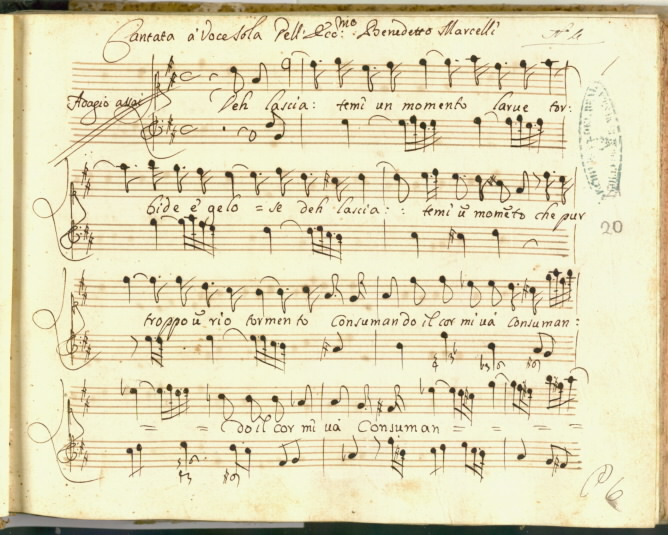 Cantata à Voce Sola Dell: Ecc:mo Benedetto Marcelli
Adagio assai
Deh lascia: temi un momento larue tor:
bide è gelo = se deh lascia: : temi ũ momẽto che pur
20
troppo ũ rio tormento Consumando il cor mi uá Consuman:
= = = do il cor mi uá Consuman = = =
6